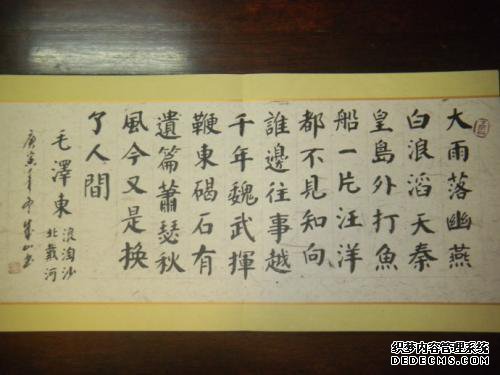 大雨落幽燕
白浪滔天秦
皇島外打魚
船一片汪洋
都不見知向
誰邊往事越
千年魏武揮
鞭東碣石有
遺篇蕭瑟秋
風今又是換
了人間
毛澤東
浪淘沙
北戴河
庚寅年
织梦内容管理系统
DEDECMS.COM